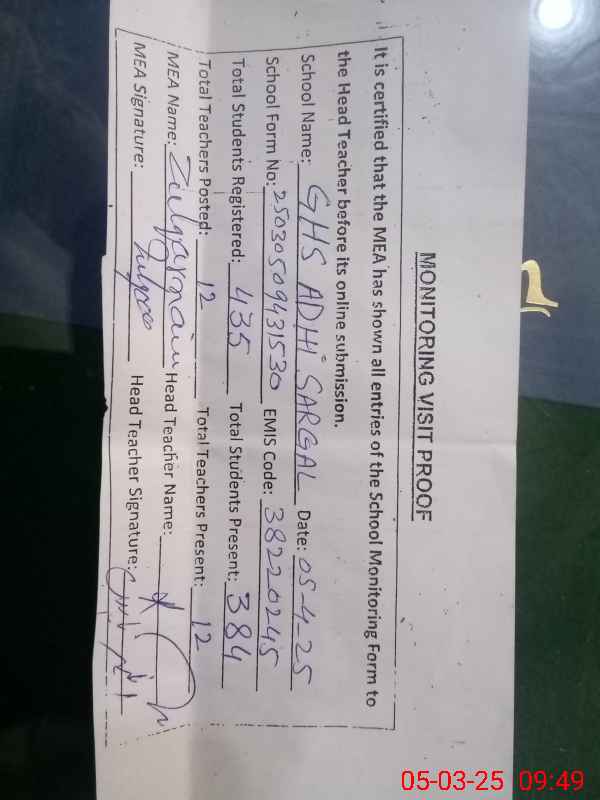 MONITORING VISIT PROOF
It is certified that the MEA has shown all entries of the School Monitoring Form to
the Head Teacher before its online submission.
School Name: GHS ADHI SARGAL Date: 05-4-25
School Form No: 25030509431530 EMIS Code: 38220245
Total Students Registered: 435 Total Students Present: 384
Total Teachers Posted: 12 Total Teachers Present: 12
MEA Name: Zulqarnain Head Teacher Name:
MEA Signature: Head Teacher Signature:
05-03-25 09:49